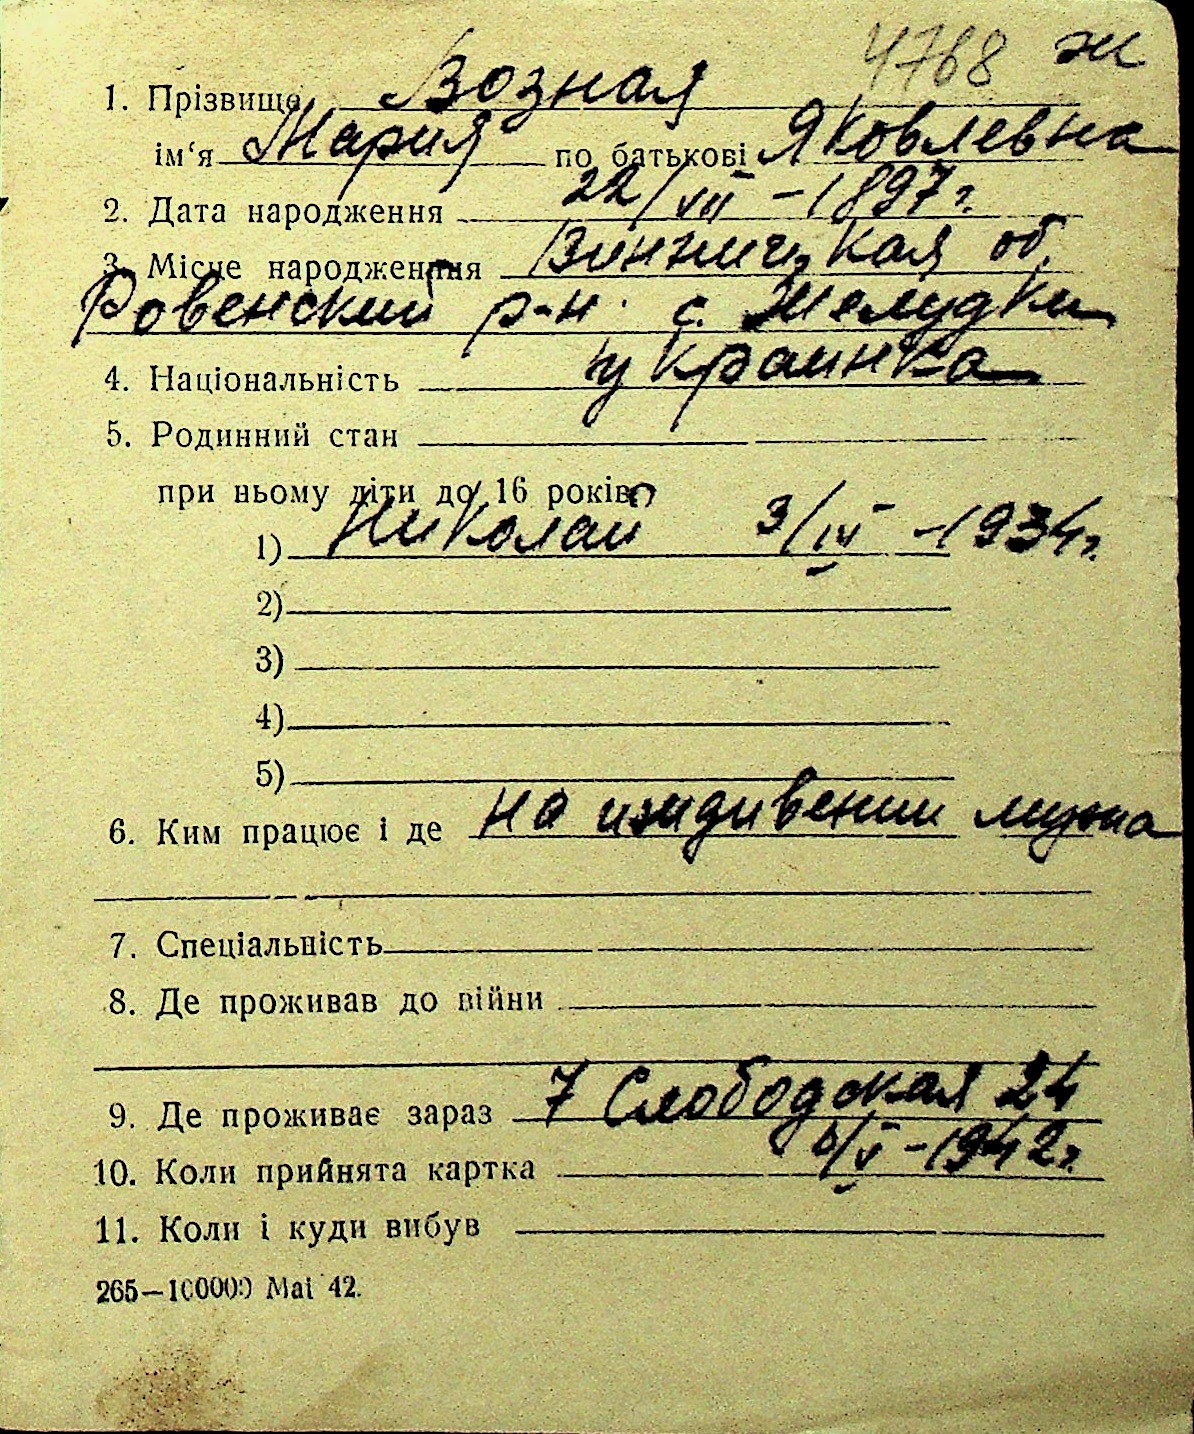 4768 ж
1. Прізвище Возная
ім‘я Мария по батькові Яковлевна
2. Дата народження 22/VII – 1897 г.
3. Місце народження Винницкая об.
Ровенский р-н. с. Желудки
4. Національність украинка
5. Родинний стан
при ньому діти до 16 років:
1) Николай 3/IV – 1934 г.
2)
3)
4)
5)
6. Ким працює і де на иждивении мужа
7. Спеціальність
8. Де проживав до війни
9. Де проживає зараз 7 Слободская 24
10. Коли прийнята картка 6/V – 1942 г.
11. Коли і куди вибув
265—100000 Mai 42.